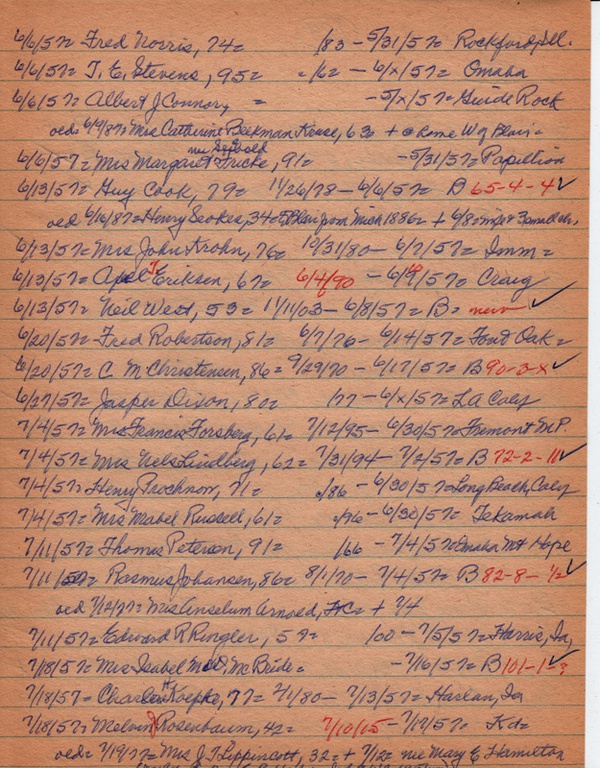 6/6/57= Fred Norris, 74= /83 - 5/31/57= Rockford, Ill.
6/6/57= T. E. Stevens, 95= -/62 - 6/x/57= Omaha
6/6/57= Albert J Connory, = -5/x/57= Guide Rock
oed= 6/9/87= Mrs Catherine Beekman Kruse, 63= + @ home W of Blair=
nee Seybold
6/6/57= Mrs Margaret Fricke, 91= -5/31/57= Papillion
6/13/57= Guy Cook, 79= 11/26/78 - 6/6/57= B 65-4-4✓
oed 6/16/87= Henry Stokes, 34= Blair from Mich 1886= + 6/8= wife & 3 small ch,
6/13/57= Mrs John Krohn, 76= 10/31/80 - 6/7/57= Imm=
6/13/57= Axel Eriksen, 67= 6/4/90 - 6/9/57= Craig
6/13/57= Neil West, 53= 11/11/03 - 6/8/57= B= new ✓
6/20/57= Fred Robertson, 81= 6/7/76 - 6/14/57= Font Oak=
6/20/57= C. M Christensen, 86= 9/29/70 - 6/17/57= B 90-3-x ✓
6/27/57= Jasper Dixon, 80= /77 - 6/x/57= LA Calif
7/4/57= Mrs Francis Forsberg, 61= 7/12/95 - 6/30/57= Fremont M.P.
7/4/57= Mrs Nels Lindberg, 62= 7/31/94 - 7/2/57= B 72-2-11✓
7/4/57= Henry Prochnow, 71= /86 - 6/30/57= Long Beach, Calif
7/4/57= Mrs Mabel Russell, 61= /96 - 6/30/57= Tekamah
7/11/57= Thomas Petersen, 91= /66 - 7/4/57= Omaha Mt Hope
7/11/57= Rasmus Johansen, 86= 8/1/70 - 7/4/57= B 82-8-1/2✓
oed 7/12/77= Mrs Anselum Arnold, FC= + 7/4
7/11/57= Edward R Ringler, 57= /00 - 7/5/57= Harris, Ia,
7/18/57= Mrs Isabel McBride= -7/16/57= B 101-1-? ✓
7/18/57= Charles H Koepke, 77= 2/1/80 - 7/13/57= Harlan, Ia
7/18/57= Melvin J Rosenbaum, 42= 7/10/15 - 7/17/57= Kd=
oed= 7/19/77= Mrs J. T Lippincott, 32= + 7/12= nee Mary E Hamilton